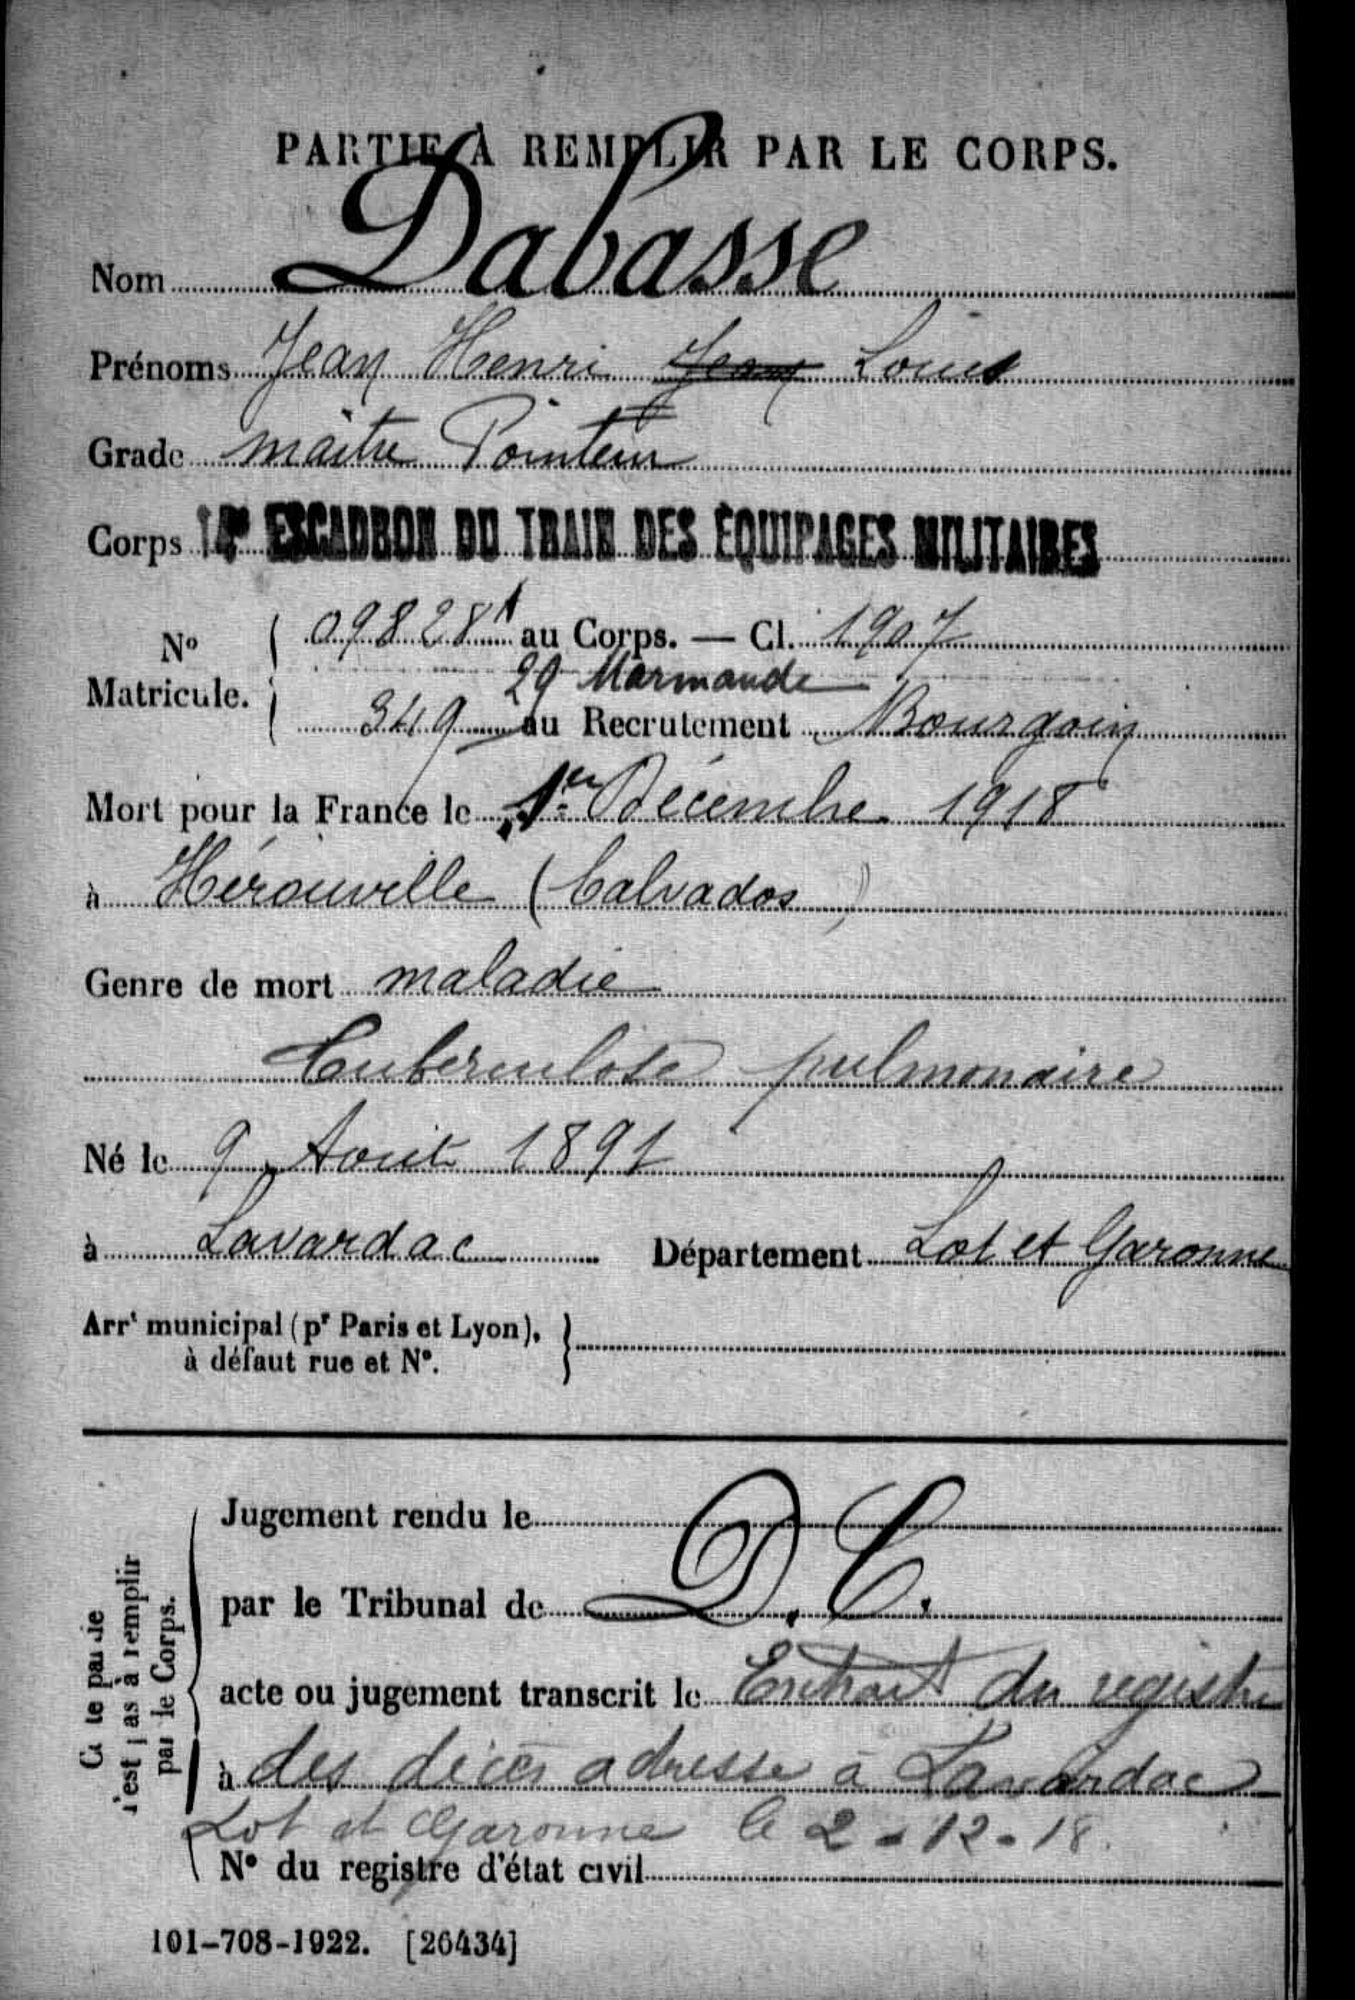 PARTIE À REMPLIR PAR LE CORPS.
Nom Dabasse
Prénoms Jean Henri Jean Louis
Grade maître Pointeur
Corps 14e ESCADRON DU TRAIN DES ÉQUIPAGES MILITAIRES
No Matricule.
09828 A au Corps. — Cl. 1907
29 Marmande
349 au Recrutement Bourgoin
Mort pour la France le 1er Décembre 1918
à Hérouville (Calvados)
Genre de mort maladie
Tuberculose pulmonaire
Né le 9 Août 1891
à Lavardac Département Lot et Garonne
Arrt municipal (pr Paris et Lyon),
à défaut rue et No.
Cette partie
n'est pas à remplir
par le Corps.
Jugement rendu le
par le Tribunal de D. C.
acte ou jugement transcrit le Extrait du registre
à des décès adressé à Lavardac
Lot et Garonne le 2-12-18.
No du registre d'état civil
101-708-1922. [26434]